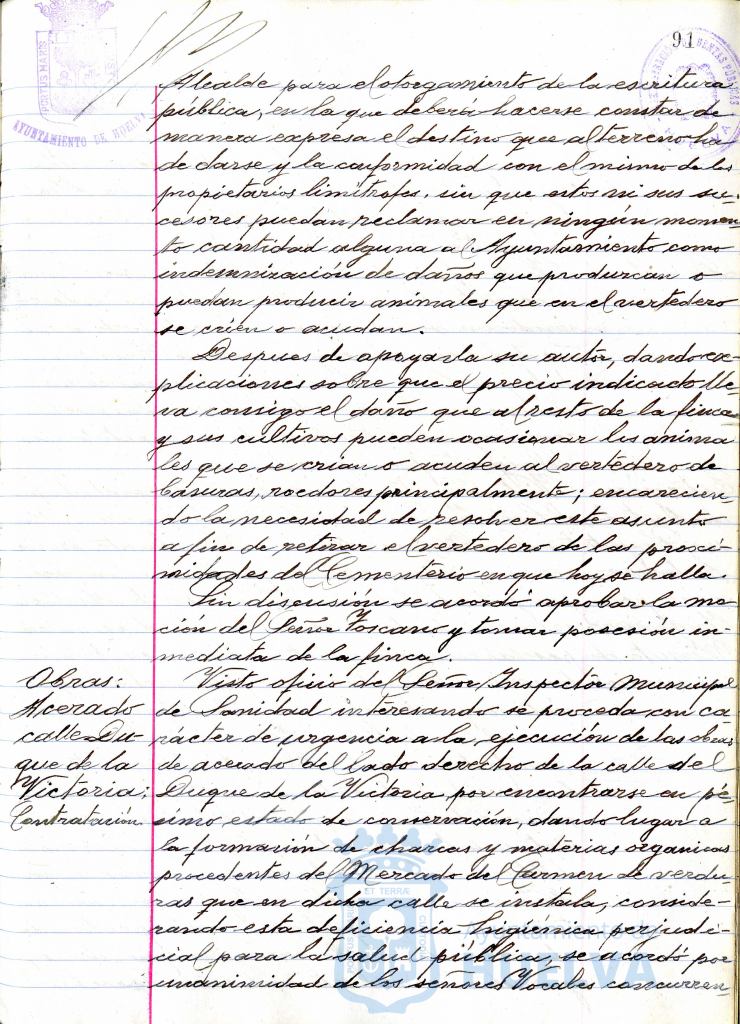 91
PORTUS MARIS
AYUNTAMIENTO DE HUELVA
Alcalde para el otorgamiento de la escritura
pública, en la que deberá hacerse constar de
manera expresa el destino que al terreno ha
de darse y la conformidad con el mismo de los
propietarios limítrofes, sin que estos ni sus su-
cesores puedan reclamar en ningún momen-
to cantidad alguna al Ayuntamiento como
indemnización de daños que produzcan o
puedan producir animales que en el vertedero
se crien o acudan.
Despues de apoyarla su autor, dando ex-
plicaciones sobre que el precio indicado lle-
va consigo el daño que al resto de la finca
y sus cultivos pueden ocasionar los anima
les que se crian o acuden al vertedero de
basuras, roedores principalmente; encarecien-
do la necesidad de resolver este asunto
a fin de retirar el vertedero de las proxi-
midades del Cementerio en que hoy se halla.
Sin discusión se acordó aprobar la mo-
ción del Señor Toscano y tomar posesión in-
mediata de la finca.
Obras:
Acerado
calle Du-
que de la
Victoria:
Contratación.
Visto oficio del Señor Inspector Municipal
de Sanidad interesando se proceda con ca-
rácter de urgencia a la ejecución de las obras
de acerado del lado derecho de la calle del
Duque de la Victoria, por encontrarse en pé-
simo estado de conservación, dando lugar a
la formación de charcas y materias organicas
procedentes del Mercado del Carmen de verdu-
ras que en dicha calle se instala, conside-
rando esta deficiencia higiénica perjudi-
cial para la salud pública, se acordó por
unanimidad de los señores Vocales concurren-
ET TERRÆ
Ayuntamiento de
HUELVA